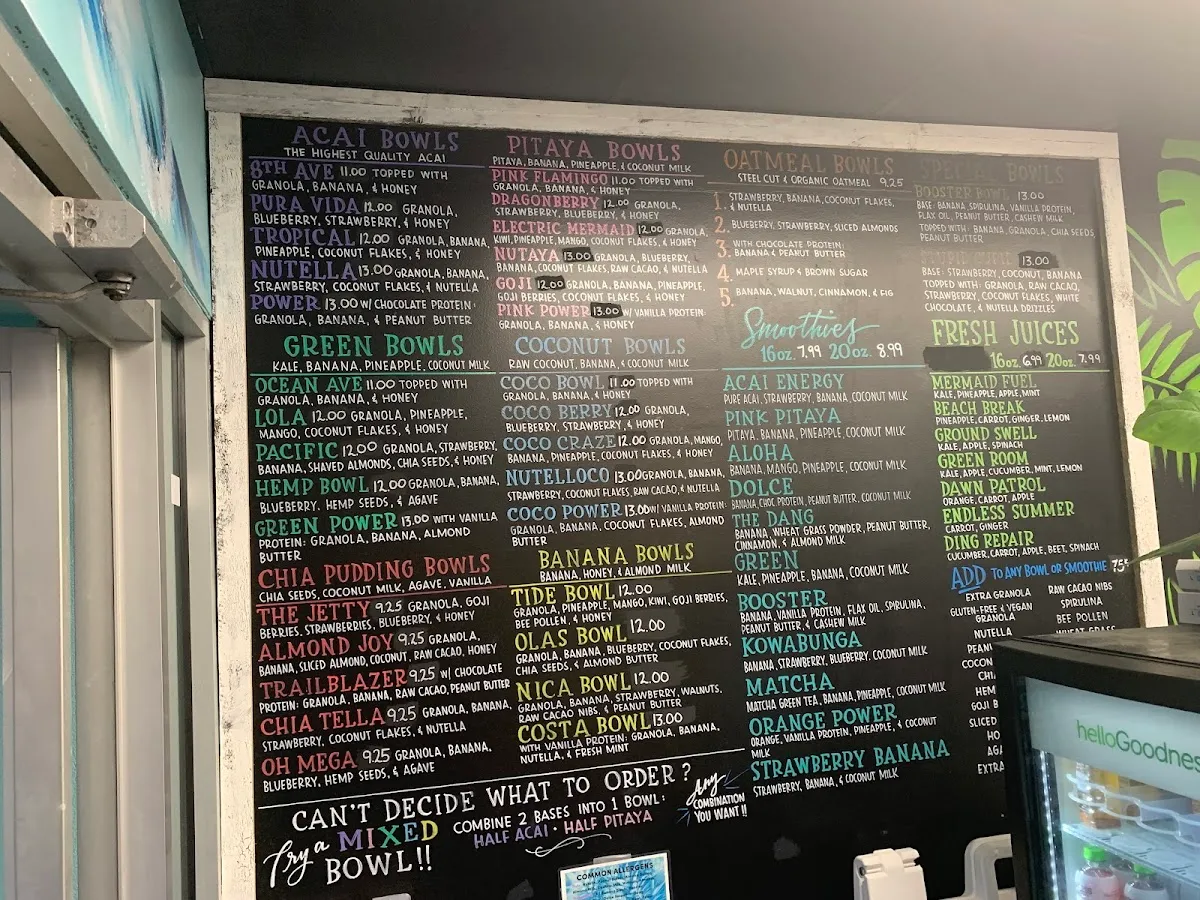 ACAI BOWLS
THE HIGHEST QUALITY ACAI
8TH AVE 11.00 TOPPED WITH
GRANOLA, BANANA, & HONEY
PURA VIDA 12.00 GRANOLA,
BLUEBERRY, STRAWBERRY, & HONEY
TROPICAL 12.00 GRANOLA, BANANA,
PINEAPPLE, COCONUT FLAKES, & HONEY
NUTELLA 13.00 GRANOLA, BANANA,
STRAWBERRY, COCONUT FLAKES, & NUTELLA
POWER 13.00 W/ CHOCOLATE PROTEIN:
GRANOLA, BANANA, & PEANUT BUTTER
GREEN BOWLS
KALE, BANANA, PINEAPPLE, COCONUT MILK
OCEAN AVE 11.00 TOPPED WITH
GRANOLA, BANANA, & HONEY
LOLA 12.00 GRANOLA, PINEAPPLE,
MANGO, COCONUT FLAKES, & HONEY
PACIFIC 12.00 GRANOLA, STRAWBERRY,
BANANA, SHAVED ALMONDS, CHIA SEEDS, & HONEY
HEMP BOWL 12.00 GRANOLA, BANANA,
BLUEBERRY, HEMP SEEDS, & AGAVE
GREEN POWER 13.00 WITH VANILLA
PROTEIN: GRANOLA, BANANA, ALMOND
BUTTER
CHIA PUDDING BOWLS
CHIA SEEDS, COCONUT MILK, AGAVE, VANILLA
THE JETTY 9.25 GRANOLA, GOJI
BERRIES, STRAWBERRIES, BLUEBERRY, & HONEY
ALMOND JOY 9.25 GRANOLA,
BANANA, SLICED ALMOND, COCONUT, RAW CACAO, HONEY
TRAILBLAZER 9.25 W/ CHOCOLATE
PROTEIN: GRANOLA, BANANA, RAW CACAO, PEANUT BUTTER
CHIA TELLA 9.25 GRANOLA, BANANA,
STRAWBERRY, COCONUT FLAKES, & NUTELLA
OH MEGA 9.25 GRANOLA, BANANA,
BLUEBERRY, HEMP SEEDS, & AGAVE
PITAYA BOWLS
PITAYA, BANANA, PINEAPPLE, & COCONUT MILK
PINK FLAMINGO 11.00 TOPPED WITH
GRANOLA, BANANA, & HONEY
DRAGONBERRY 12.00 GRANOLA,
STRAWBERRY, BLUEBERRY, & HONEY
ELECTRIC MERMAID 12.00 GRANOLA,
KIWI, PINEAPPLE, MANGO, COCONUT FLAKES, & HONEY
NUTAYA 13.00 GRANOLA, BLUEBERRY,
BANANA, COCONUT FLAKES, RAW CACAO, & NUTELLA
GOJI 12.00 GRANOLA, BANANA, PINEAPPLE,
GOJI BERRIES, COCONUT FLAKES, & HONEY
PINK POWER 13.00 W/ VANILLA PROTEIN:
GRANOLA, BANANA, & HONEY
COCONUT BOWLS
RAW COCONUT, BANANA, & COCONUT MILK
COCO BOWL 11.00 TOPPED WITH
GRANOLA, BANANA, & HONEY
COCO BERRY 12.00 GRANOLA,
BLUEBERRY, STRAWBERRY, & HONEY
COCO CRAZE 12.00 GRANOLA, MANGO,
BANANA, PINEAPPLE, COCONUT FLAKES, & HONEY
NUTELLOCO 13.00 GRANOLA, BANANA,
STRAWBERRY, COCONUT FLAKES, RAW CACAO, & NUTELLA
COCO POWER 13.00 W/ VANILLA PROTEIN:
GRANOLA, BANANA, COCONUT FLAKES, ALMOND
BUTTER
BANANA BOWLS
BANANA, HONEY, & ALMOND MILK
TIDE BOWL 12.00
GRANOLA, PINEAPPLE, MANGO, KIWI, GOJI BERRIES,
BEE POLLEN, & HONEY
OLAS BOWL 12.00
GRANOLA, BANANA, BLUEBERRY, COCONUT FLAKES,
CHIA SEEDS, & ALMOND BUTTER
NICA BOWL 12.00
GRANOLA, BANANA, STRAWBERRY, WALNUTS,
RAW CACAO NIBS, & PEANUT BUTTER
COSTA BOWL 13.00
WITH VANILLA PROTEIN: GRANOLA, BANANA,
NUTELLA, & FRESH MINT
CAN'T DECIDE WHAT TO ORDER?
Try a MIXED
BOWL!!
COMBINE 2 BASES INTO 1 BOWL:
HALF ACAI • HALF PITAYA
Any
COMBINATION
YOU WANT!!
OATMEAL BOWLS
STEEL CUT & ORGANIC OATMEAL 9.25
1. STRAWBERRY, BANANA, COCONUT FLAKES,
& NUTELLA
2. BLUEBERRY, STRAWBERRY, SLICED ALMONDS
3. WITH CHOCOLATE PROTEIN:
BANANA & PEANUT BUTTER
4. MAPLE SYRUP & BROWN SUGAR
5. BANANA, WALNUT, CINNAMON, & FIG
Smoothies
16oz. 7.99 20oz. 8.99
ACAI ENERGY
PURE ACAI, STRAWBERRY, BANANA, COCONUT MILK
PINK PITAYA
PITAYA, BANANA, PINEAPPLE, COCONUT MILK
ALOHA
BANANA, MANGO, PINEAPPLE, COCONUT MILK
DOLCE
BANANA, CHOC PROTEIN, PEANUT BUTTER, COCONUT MILK
THE DANG
BANANA, WHEAT GRASS POWDER, PEANUT BUTTER,
CINNAMON, & ALMOND MILK
GREEN
KALE, PINEAPPLE, BANANA, COCONUT MILK
BOOSTER
BANANA, VANILLA PROTEIN, FLAX OIL, SPIRULINA,
PEANUT BUTTER, & CASHEW MILK
KOWABUNGA
BANANA, STRAWBERRY, BLUEBERRY, COCONUT MILK
MATCHA
MATCHA GREEN TEA, BANANA, PINEAPPLE, COCONUT MILK
ORANGE POWER
ORANGE, VANILLA PROTEIN, PINEAPPLE, & COCONUT
MILK
STRAWBERRY BANANA
STRAWBERRY, BANANA, & COCONUT MILK
SPECIAL BOWLS
BOOSTER BOWL 13.00
BASE: BANANA, SPIRULINA, VANILLA PROTEIN,
FLAX OIL, PEANUT BUTTER, CASHEW MILK
TOPPED WITH: BANANA, GRANOLA, CHIA SEEDS,
PEANUT BUTTER
13.00
BASE: STRAWBERRY, COCONUT, BANANA
TOPPED WITH: GRANOLA, RAW CACAO,
STRAWBERRY, COCONUT FLAKES, WHITE
CHOCOLATE, & NUTELLA DRIZZLES
FRESH JUICES
16oz. 6.99 20oz. 7.99
MERMAID FUEL
KALE, PINEAPPLE, APPLE, MINT
BEACH BREAK
PINEAPPLE, CARROT, GINGER, LEMON
GROUND SWELL
KALE, APPLE, SPINACH
GREEN ROOM
KALE, APPLE, CUCUMBER, MINT, LEMON
DAWN PATROL
ORANGE, CARROT, APPLE
ENDLESS SUMMER
CARROT, GINGER
DING REPAIR
CUCUMBER, CARROT, APPLE, BEET, SPINACH
ADD TO ANY BOWL OR SMOOTHIE 75¢
EXTRA GRANOLA
GLUTEN-FREE & VEGAN
GRANOLA
NUTELLA
RAW CACAO NIBS
SPIRULINA
BEE POLLEN
WHEAT GRASS
EXTRA
helloGoodness
COMMON ALLERGENS